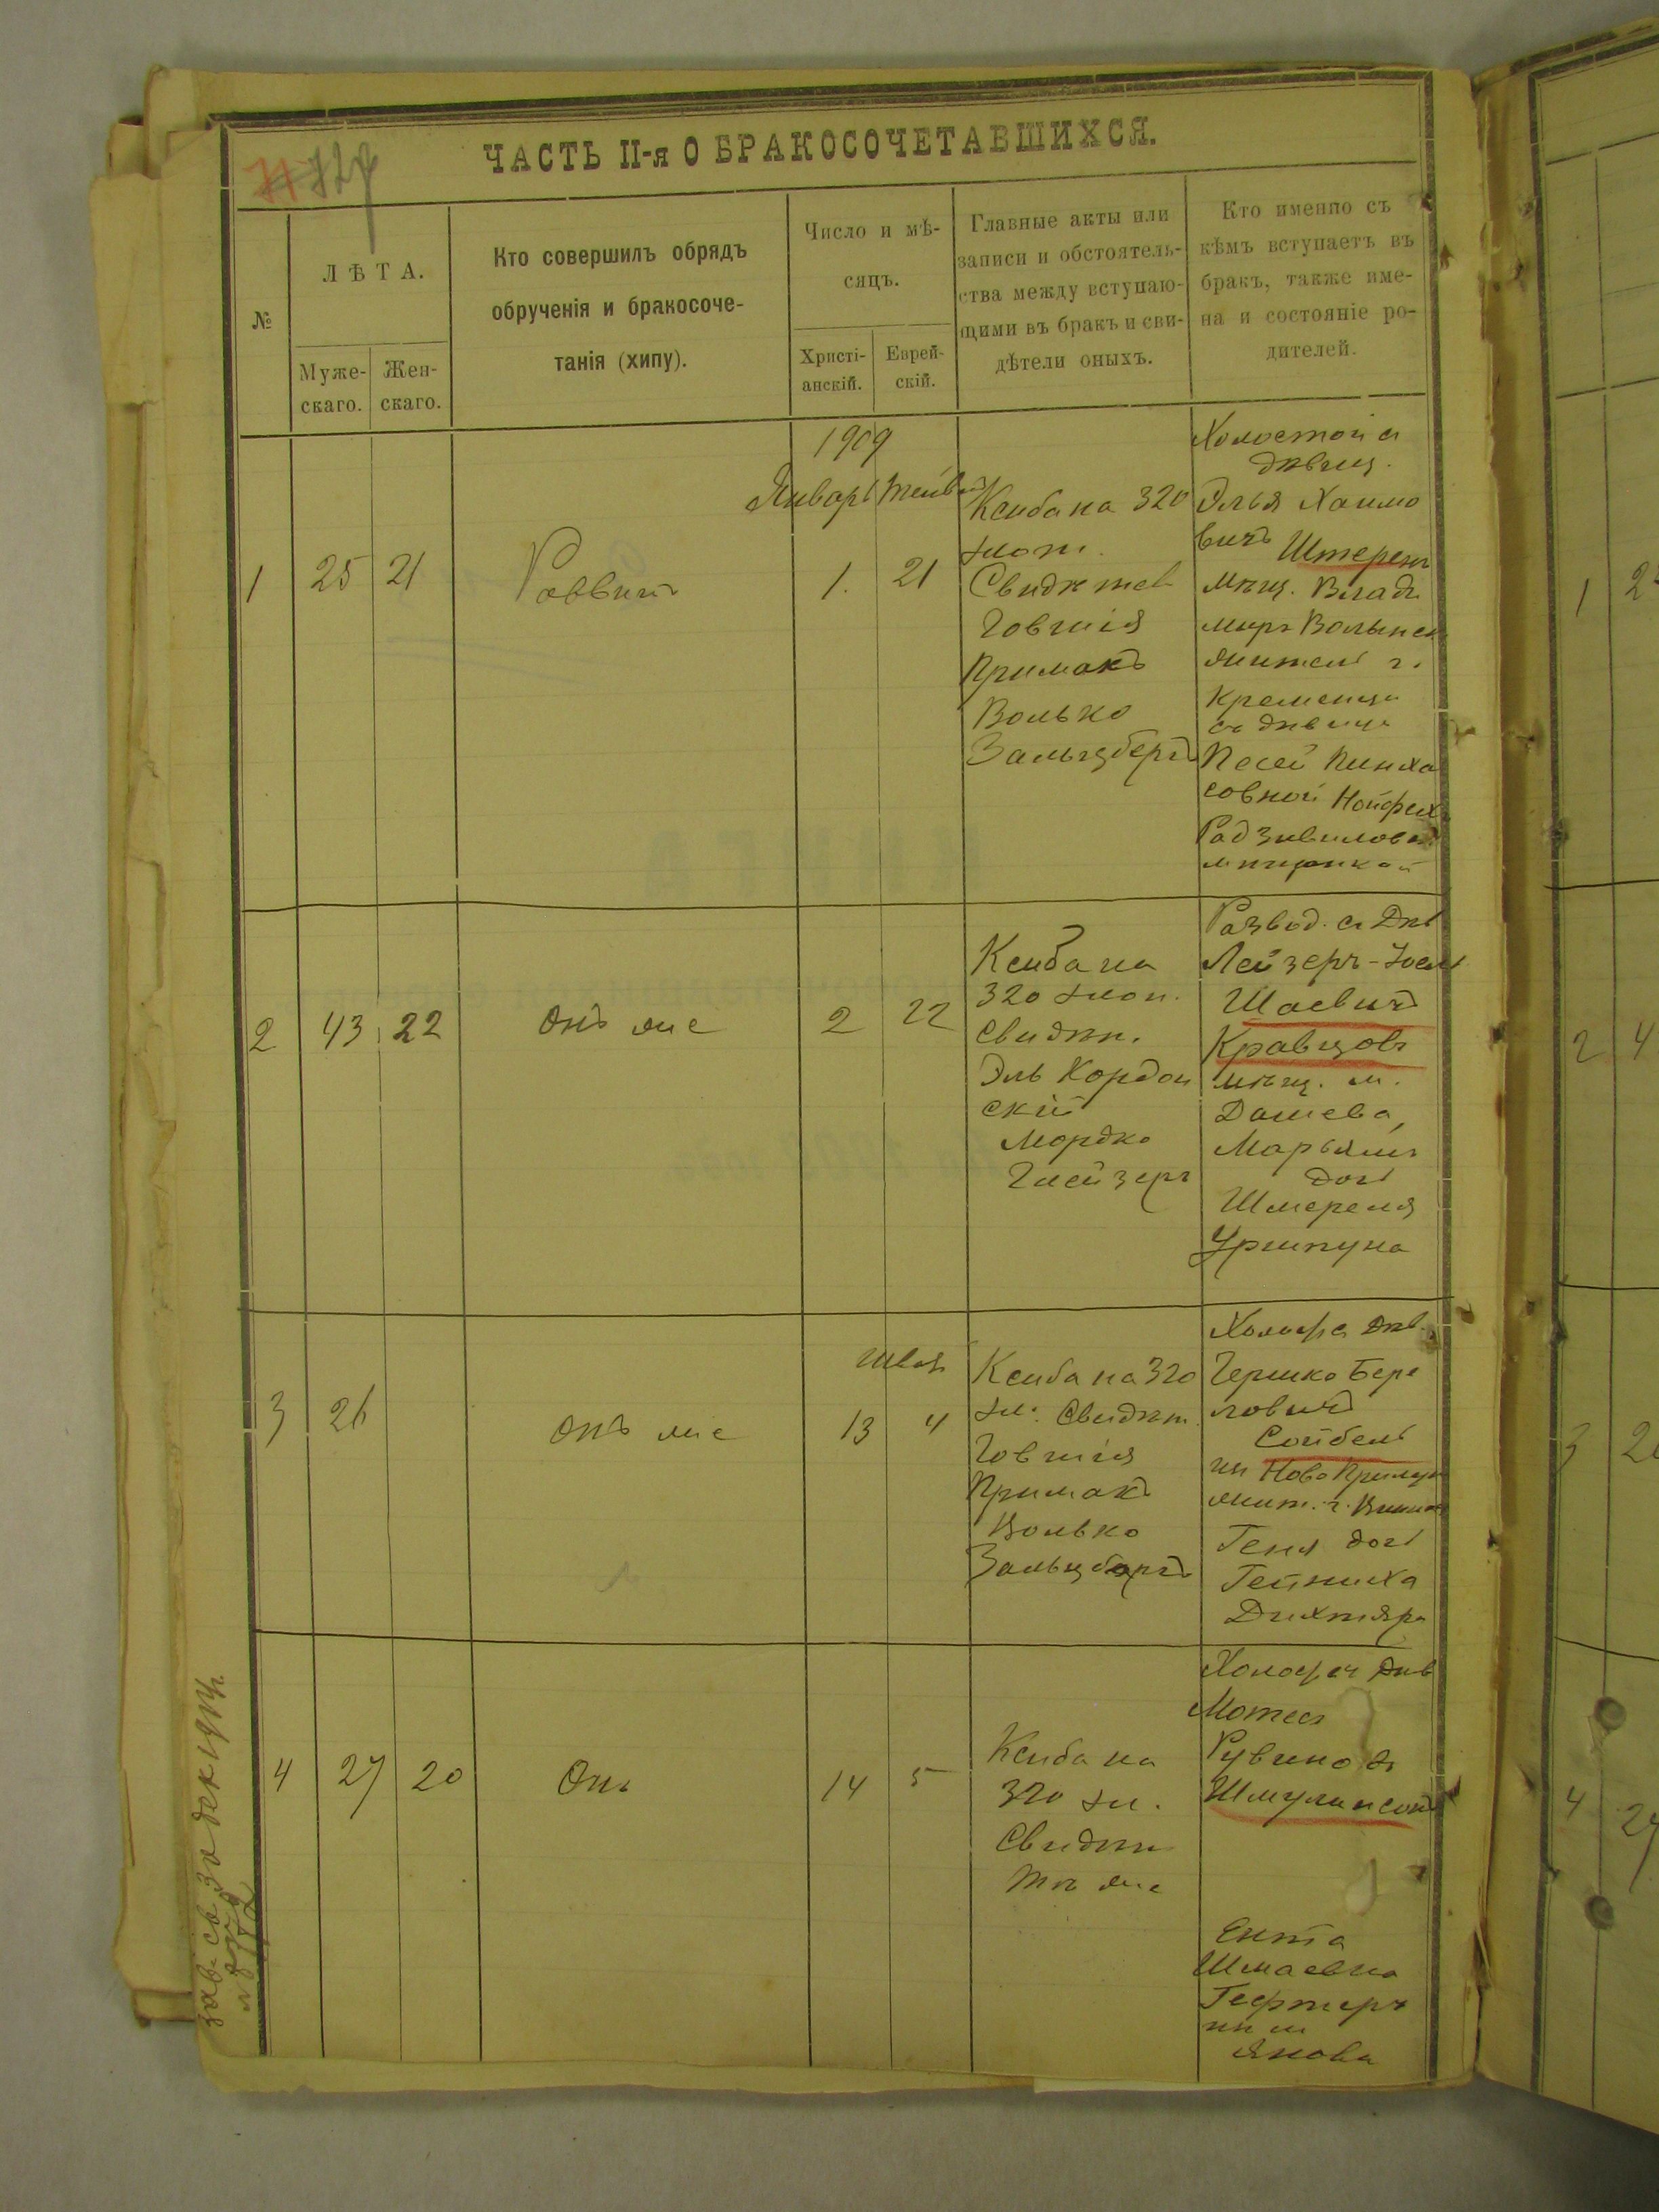 ЧАСТЬ II-я О БРАКОСОЧЕТАВШИХСЯ.
№
ЛѢТА.
Муже-
скаго.
Жен-
скаго.
Кто совершилъ обрядъ
обрученія и бракосоче-
танія (хипу).
Число и мѣ-
сяцъ.
Христі-
анскій.
Еврей-
скій.
Главные акты или
записи и обстоятель-
ства между вступаю-
щими въ бракъ и сви-
дѣтели оныхъ.
Кто именно съ
кѣмъ вступаетъ въ
бракъ, также име-
на и состояніе ро-
дителей.
1909
Январь
1
25
21
Раввинъ
1.
21
Ксиба на 320
злот.
Свидѣтел
Говшія
Примакъ
Волько
Зальцбергъ
Холостой съ
дѣвиц.
Элья Хаимо
вичъ Штернъ
мѣщ. Влади
миръ Волынск
житель г.
Кременца
съ дѣвице
Песей Пинха
совной
Радзивиловск
мѣщанкой
2
43
22
Онъ же
2
22
Ксиба на
320 злот.
Свидѣт.
Эль Кордон
скій
Мордко
Глейзеръ
Развод. съ Дѣв
Лейзеръ-Иосль
Шаевичъ
Кравцовъ
мѣщ. м.
Дашева,
Марьямъ
дочь
Шмереля
3
26
Онъ же
13
4
Ксиба на 320
зл. Свидѣт.
Говшія
Примакъ
Волько
Зальцбергъ
Холост съ Дѣв.
Гершко Бере
ловичъ
Сойбель
изъ Ново Прилук
жит. г. Винниц
Геня дочь
Гейниха
Дихтяра
4
27
20
Онъ
14
5
Ксиба на
320 зл.
Свидѣт
Тѣ же
Холост съ Дѣв
Мотесь
Рувинов
Шмулинсонъ
Ента
Шмаевна
Гефтеръ
из м
Янова